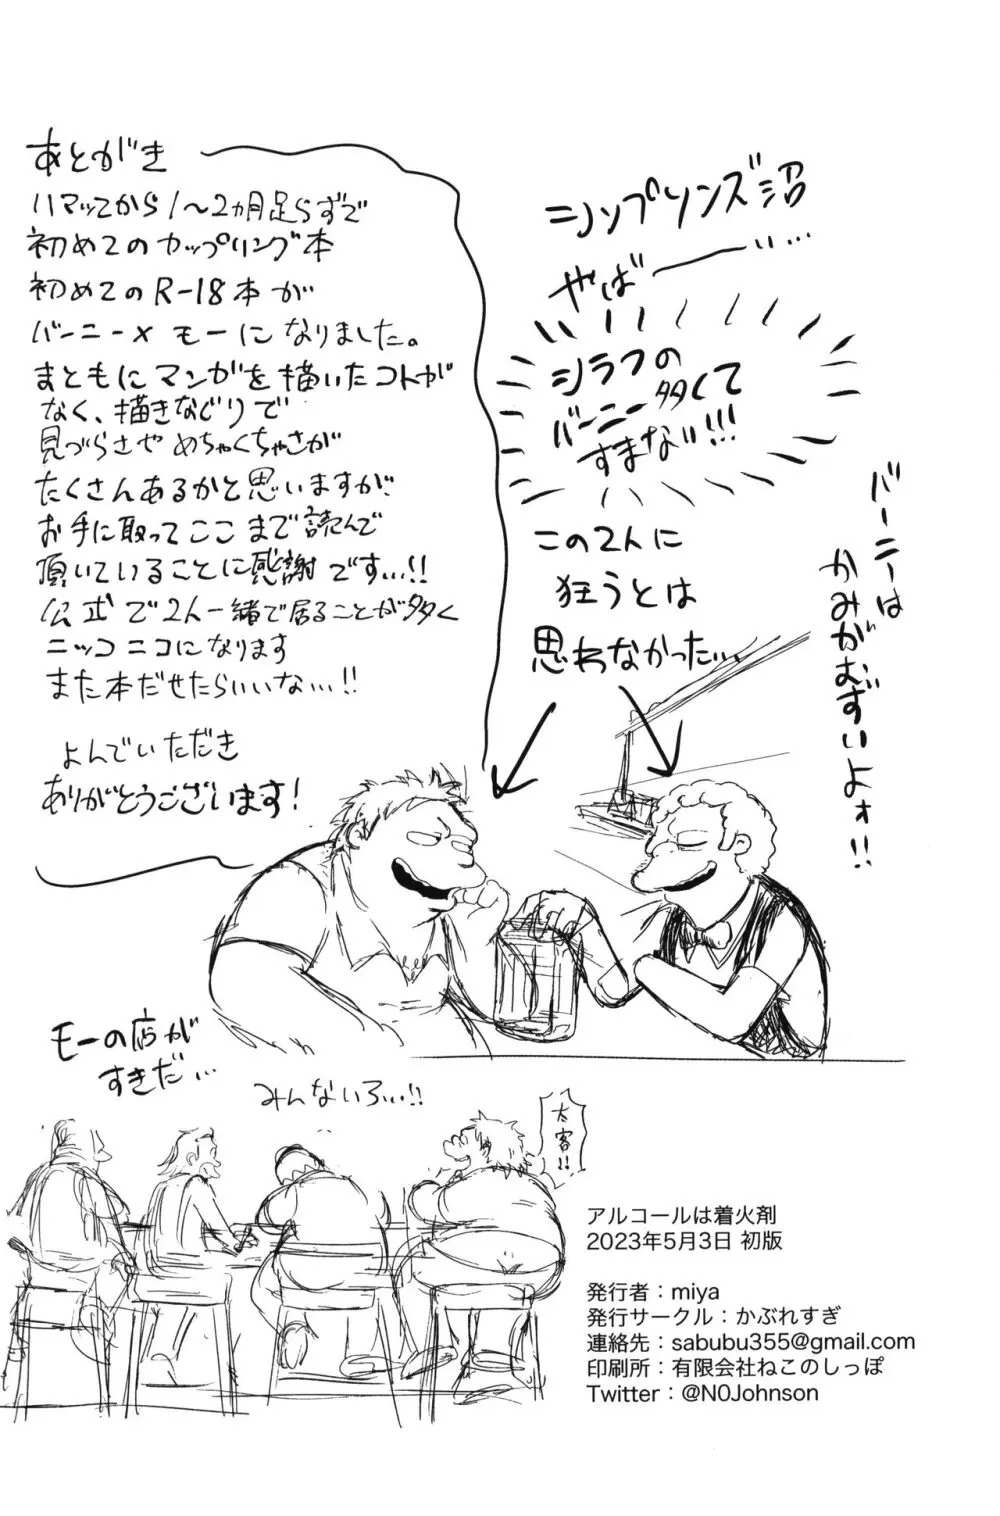 あとがき
ハマッてから1〜2ヵ月足らずで
初めてのカップリング本
初めてのR-18本が
バーニー×モーになりました。
まともにマンガを描いたコトが
なく、描きなぐりで
見づらさやめちゃくちゃさが
たくさんあるかと思いますが
お手に取ってここまで読んで
頂いていることに感謝です...!!
公式で2人一緒で居ることが多く
ニッコニコになります
また本だせたらいいな...!!
よんでいただき
ありがとうございます!
シンプソンズ沼
やばーーい...
シラフの
バーニー多くて
すまない!!!
この2人に
狂うとは
思わなかった...
バーニーは
かみがむずいよォ!!
モーの店が
すきだ...
みんないる...!!
太客!!
アルコールは着火剤
2023年5月3日 初版
発行者：miya
発行サークル：かぶれすぎ
連絡先：sabubu355@gmail.com
印刷所：有限会社ねこのしっぽ
Twitter：@N0Johnson